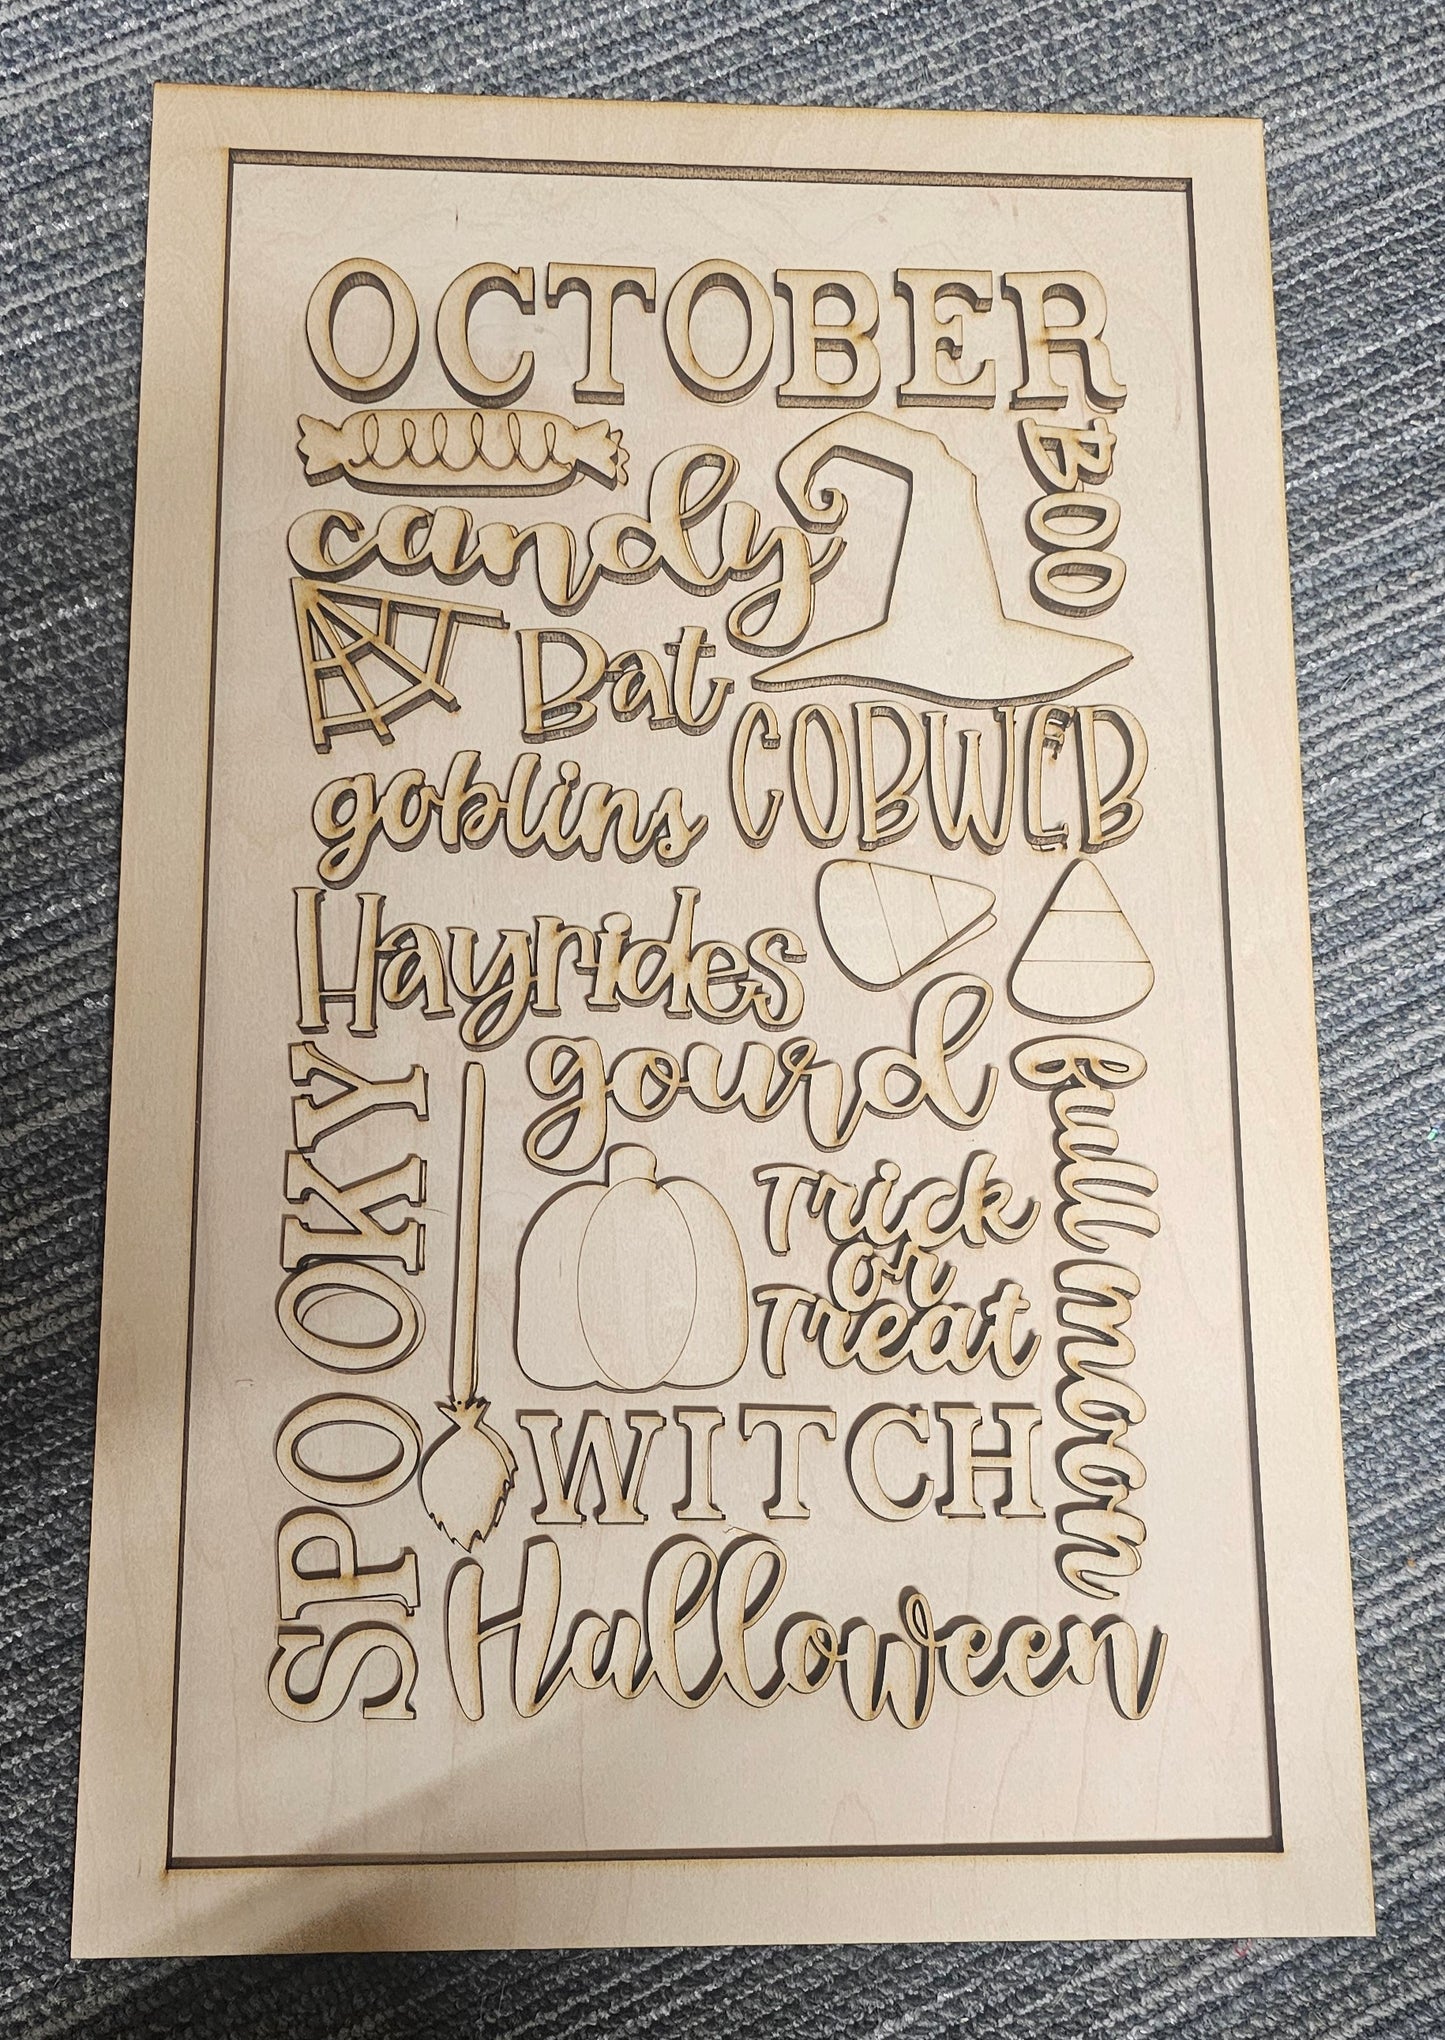 OCTOBER
BOO
candy
Bat
COBWEB
goblins
Hayrides
gourd
SPOOKY
full moon
Trick
or
Treat
WITCH
Halloween